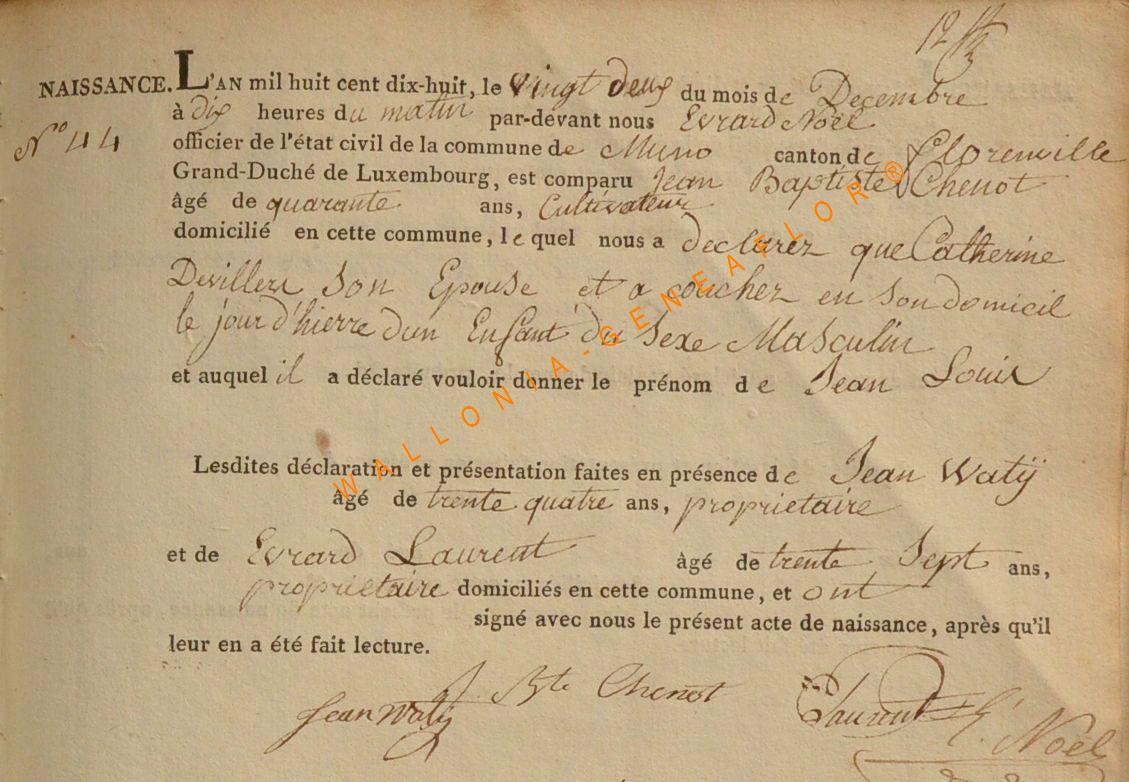 NAISSANCE. L'AN mil huit cent dix-huit, le vingt deux du mois de Decembre
N° 44
à dix heures du matin par-devant nous Evrard Noël
officier de l'état civil de la commune de Muno canton de Florenville
Grand-Duché de Luxembourg, est comparu Jean Baptiste Chenot
âgé de quarante ans, Cultivateur
domicilié en cette commune, le quel nous a declarez que Catherine
Devillers Son Epouse et a couchez en son domicil
le jour d'hierre dun Enfant du Sexe Masculin
et auquel il a déclaré vouloir donner le prénom de Jean Louis
Lesdites déclaration et présentation faites en présence de Jean Watÿ
âgé de trente quatre ans, proprietaire
et de Evrard Laurent âgé de trente Sept ans,
proprietaire domiciliés en cette commune, et ont
signé avec nous le présent acte de naissance, après qu'il
leur en a été fait lecture.
Jean Watÿ J Bte Chenot Laurent E. Noël
WALLONIA-GENEAFLOR®